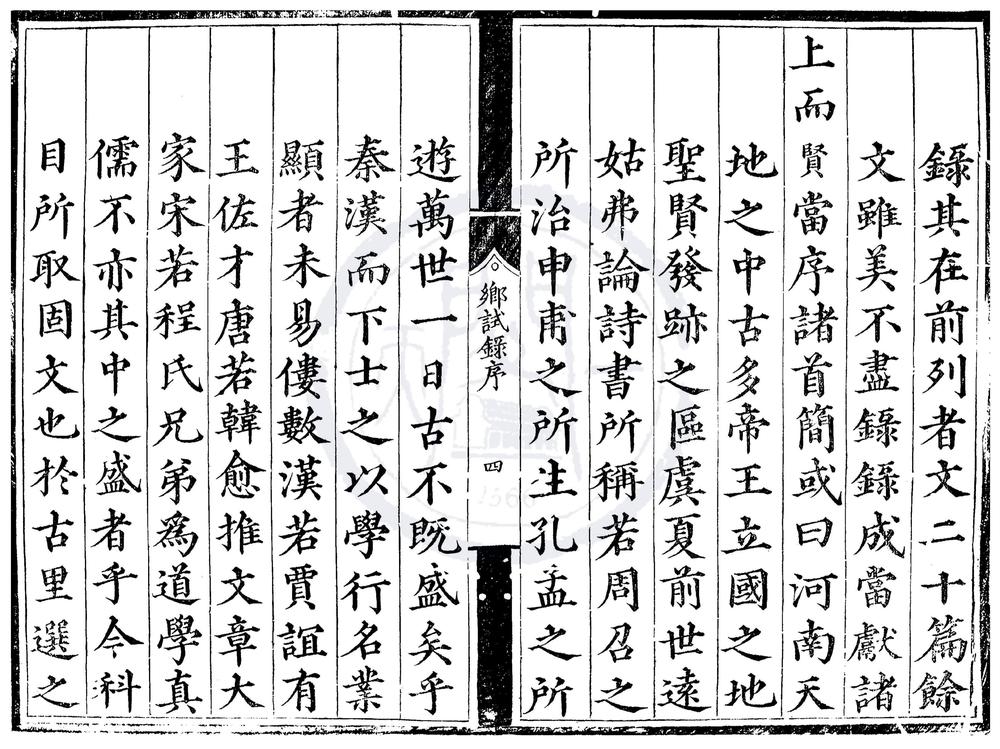 錄其在前列者文二十篇餘
文雖美不盡錄錄成當獻諸
上而賢當序諸首簡或曰河南天
地之中古多帝王立國之地
聖賢發跡之區虞夏前世遠
姑弗論詩書所稱若周召之
所治申甫之所生孔孟之所
鄉試錄序
四
遊萬世一日古不既盛矣乎
秦漢而下士之以學行名業
顯者未易僂數漢若賈誼有
王佐才唐若韓愈推文章大
家宋若程氏兄弟爲道學真
儒不亦其中之盛者乎今科
目所取固文也於古里選之
1566